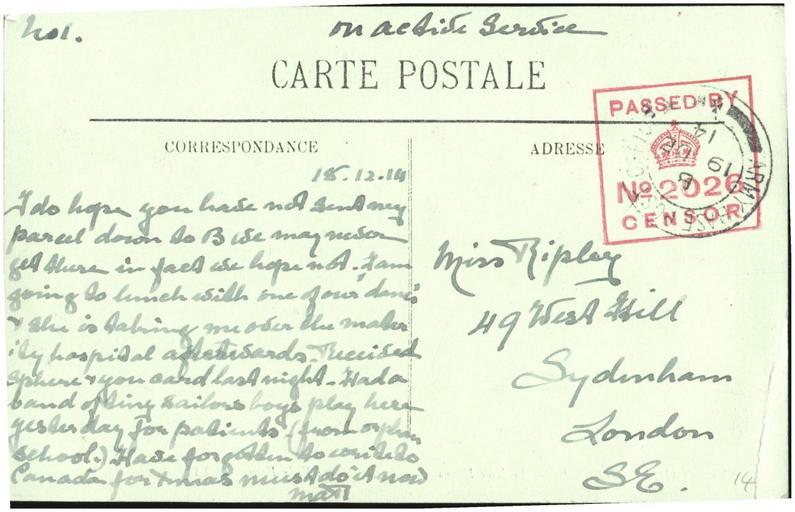 No1.
on active Service
CARTE POSTALE
CORRESPONDANCE
ADRESSE
PASSED BY
No 2026
CENSOR
18.12.14
I do hope you have not sent my
parcel down to B we may never
get there in fact we hope not. I am
going to lunch with one of our 'dames'
& she is taking me over the mater
ity hospital afterwards. Received
Sphere & you card last night. Had a
band of tiny sailors boys play here
yesterday for patients (from orphan
school.) Have forgotten to write to
Canada for Xmas must do it now
Miss Ripley
49 West Hill
Sydenham
London
S.E.
14